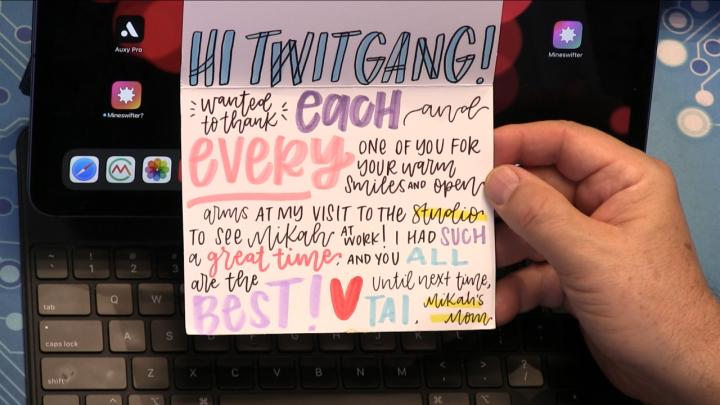 HI TWITGANG!
wanted to thank each and
every ONE OF YOU FOR
YOUR warm
smiles AND open
arms AT MY VISIT TO THE studio
TO see Mikah AT WORK! I HAD SUCH
a great time. AND YOU ALL
are the BEST! until next time,
TAI, Mikah's
Mom
Auxy Pro
Mineswifter?
Mineswifter
tab
Q
W
caps lock
A
S
shift
Z
X
C
V
B
N
M
1
2